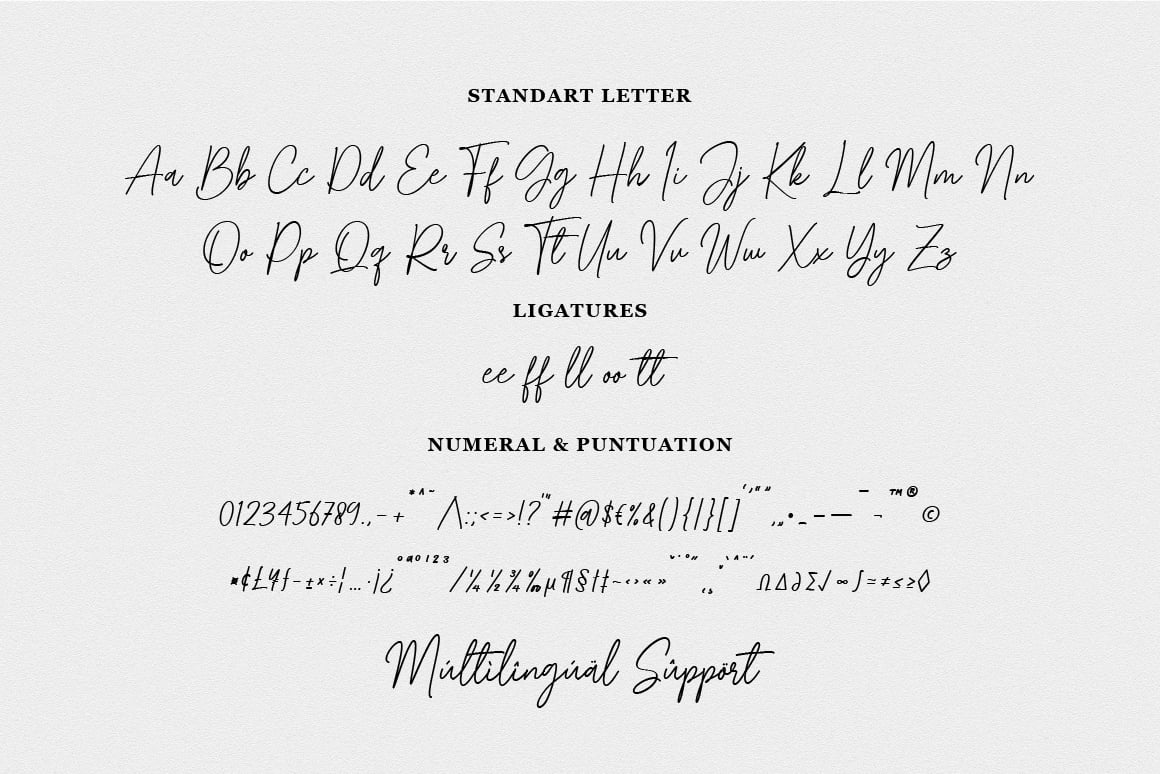 STANDART LETTER
Aa Bb Cc Dd Ee Ff Gg Hh Ii Jj Kk Ll Mm Nn
Oo Pp Qq Rr Ss Tt Uu Vv Ww Xx Yy Zz
LIGATURES
ee ff ll oo tt
NUMERAL & PUNTUATION
0123456789.,-+*^~/\:;<=>!?'"#@$€%&(){|}[]‘’“”‚„•_–—¯¬™®©
¤¢£¥ƒ-±×÷¦…·¡¿ºª0123/¼½¾‰µ¶§†‡~‹›«»ˇ˙°˝¸˛`^¨´Ω∆∂∑√∞∫≈≠≤≥◊
Múltìlîngúäl Sûppört